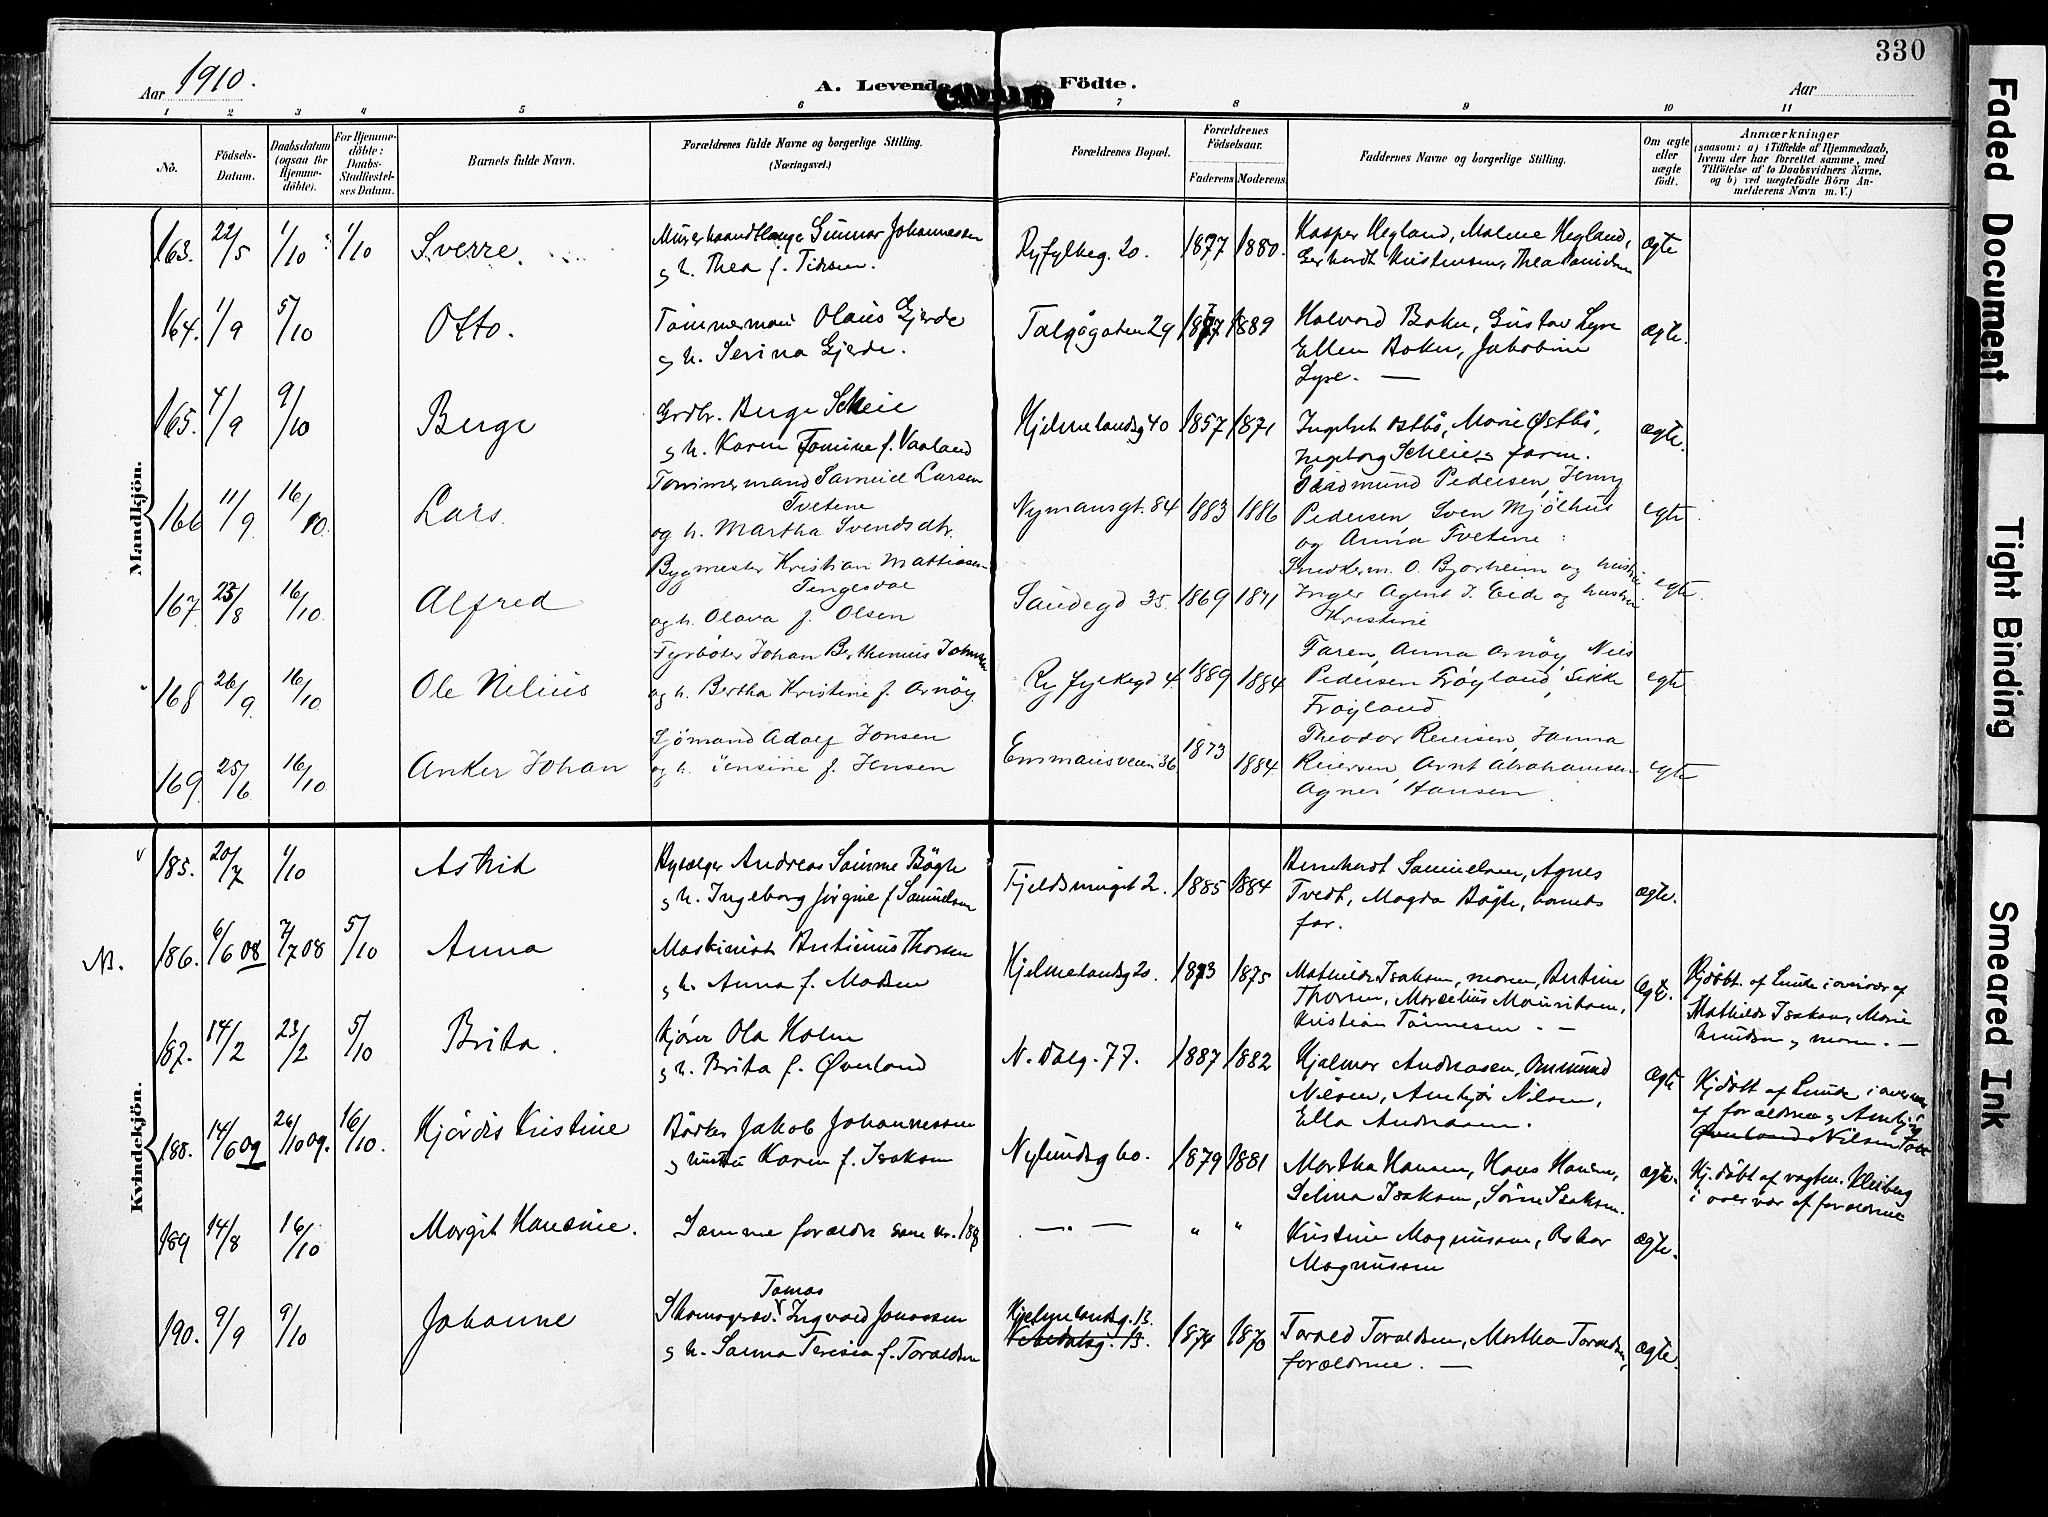 330
Aar 1910.
A. Levende Födte.
Aar
1 2 3 4 5 6 7 8 9 10 11
No.
Födsels-Datum.
Daabsdatum (ogsaa for Hjemme-döbte).
For Hjemme-döbte: Daabs-Stadfæstel-ses Datum.
Barnets fulde Navn.
Forældrenes fulde Navne og borgerlige Stilling.
(Næringsvei.)
Forældrenes Bopæl.
Forældrenes Födselsaar.
Faderens Moderens
Faddernes Navne og borgerlige Stilling.
Om ægte eller uægte födt.
Anmærkninger
(saasom: a) i Tilfælde af Hjemmedaab, hvem der har forrettet samme, med Tilföielse af to Daabsvidners Navne, og b) ved uægtefödte Börn An-melderens Navn m. V.)
Mandkjön.
163. 22/5 1/10 1/10 Sverre.
Gunnar Johannessen
g h. Thea f.
Ryfylkeg. 20. 1877 1880.
Kasper Hegland, Malene Hegland,
Gerhardt Kristensen, Thea
ægte
164. 1/9 5/10 Otto.
Tömmermand Olaus Gjerde
g h. Serina Gjerde.
Talgögaten 29 1877 1889
Halvard Boken, Gustav Lyse
Ellen Boken, Jakobine
Lyse. —
ægte.
165. 4/9 9/10 Berge
Grdbr. Berge Scheie
g h. Karen Tomine f. Vaaland
Hjelmelandsg 40 1857 1871
Ostbö, Marie Østbö,
Ingeborg Scheie g farm.
ægte.
166 11/9 16/10 Lars
Tömmermand Samuel Larsen
Tvetene
og h. Martha Svendsdtr.
Nymansgt. 84 1883 1886
Pedersen, Jenny
Pedersen Sven Mjølhus
og Anna Tvetene
egte
167 23/8 16/10 Alfred
Bygmester Kristian Mattiasen
Tengesdal
og h. Olava f. Olsen
Saudegd 35 1869 1871
Snedkerm. O. Bjorheim og hustru
Inger Agent J. Eide og hustru
Kristine
egte.
168 26/9 16/10 Ole Nilius
Fyrböter Johan Berthinius Johnsen
og h. Bertha Kristine f. Arnöy
Ryfylkegd 4. 1889 1884
Faren, Anna Arnöy Niels
Pedersen Fröyland, Sikke
Fröyland
egte
169 25/6 16/10 Anker Johan
Sjömand Adolf Jonsen
og h. Jensine f. Jensen
Emmausveien 36 1873 1884
Theodor Reiersen, Hanna
Reiersen, Arnt Abrahamsen
Agnes Hansen.
egte
Kvindekjön.
185. 20/7 1/10 Astrid
Andreas Sömme Bögh
g h. Ingeborg Jörgine f Samuelsen
2. 1885 1884
Bernhardt Samuelsen, Agnes
Tvedt, Magda Bögh, barnets
far.
ægte.
N. 186. 6/6 08 7/7 08 5/10 Anna
Maskinist Bertinius Thorsen
g h. Anna f. Madsen
Hjelmelandsg 20. 1873 1875
Mathilde Isaksen, moren, Bertine
Thorsen, Marselius Mauritsen,
Kristian Tönnesen. —
ægte.
Hjdöbt. af Lunde i overvær af
Mathilde Isaksen, Marie
Knudsen g moren. —
187. 14/2 23/2 5/10 Brita.
Kjörer Ola Holm
g h. Brita f. Øverland
N. Dalg. 77. 1887 1882
Hjalmar Andreasen, Ommund
Nilsen, Nilsen,
Ella Andreasen.
ægte
Hjdöbt af Lunde i overvær
af forældrene g
Øverland Nilsen
188. 14/6 09 26/10 09. 16/10. Hjördis Kristine
Bödker Jakob Johannessen
g hustru Karen f. Isaksen
Nylundsg 60. 1879 1881
Martha Hansen, Hans Hansen,
Selina Isaksen, Sörine Isaksen.
ægte.
Hj. döbt af vagtm. Kleiberg
i overvær af forældrene
189 14/8 16/10 Margit Hansine.
Samme forældre som nr. 188
— " — " "
Kristine Magnussen, Oskar
Magnussen
ægte.
190. 9/9 9/10 Johanne
Tomas
Ingvald Jonassen
g h. Sanna Teresia f. Toraldsen
Hjelmelandsg. 13.
1874 1870
Torald Toraldsen, Martha Toraldsen,
forældrene. —
ægte.
Faded Document
Tight Binding
Smeared Ink